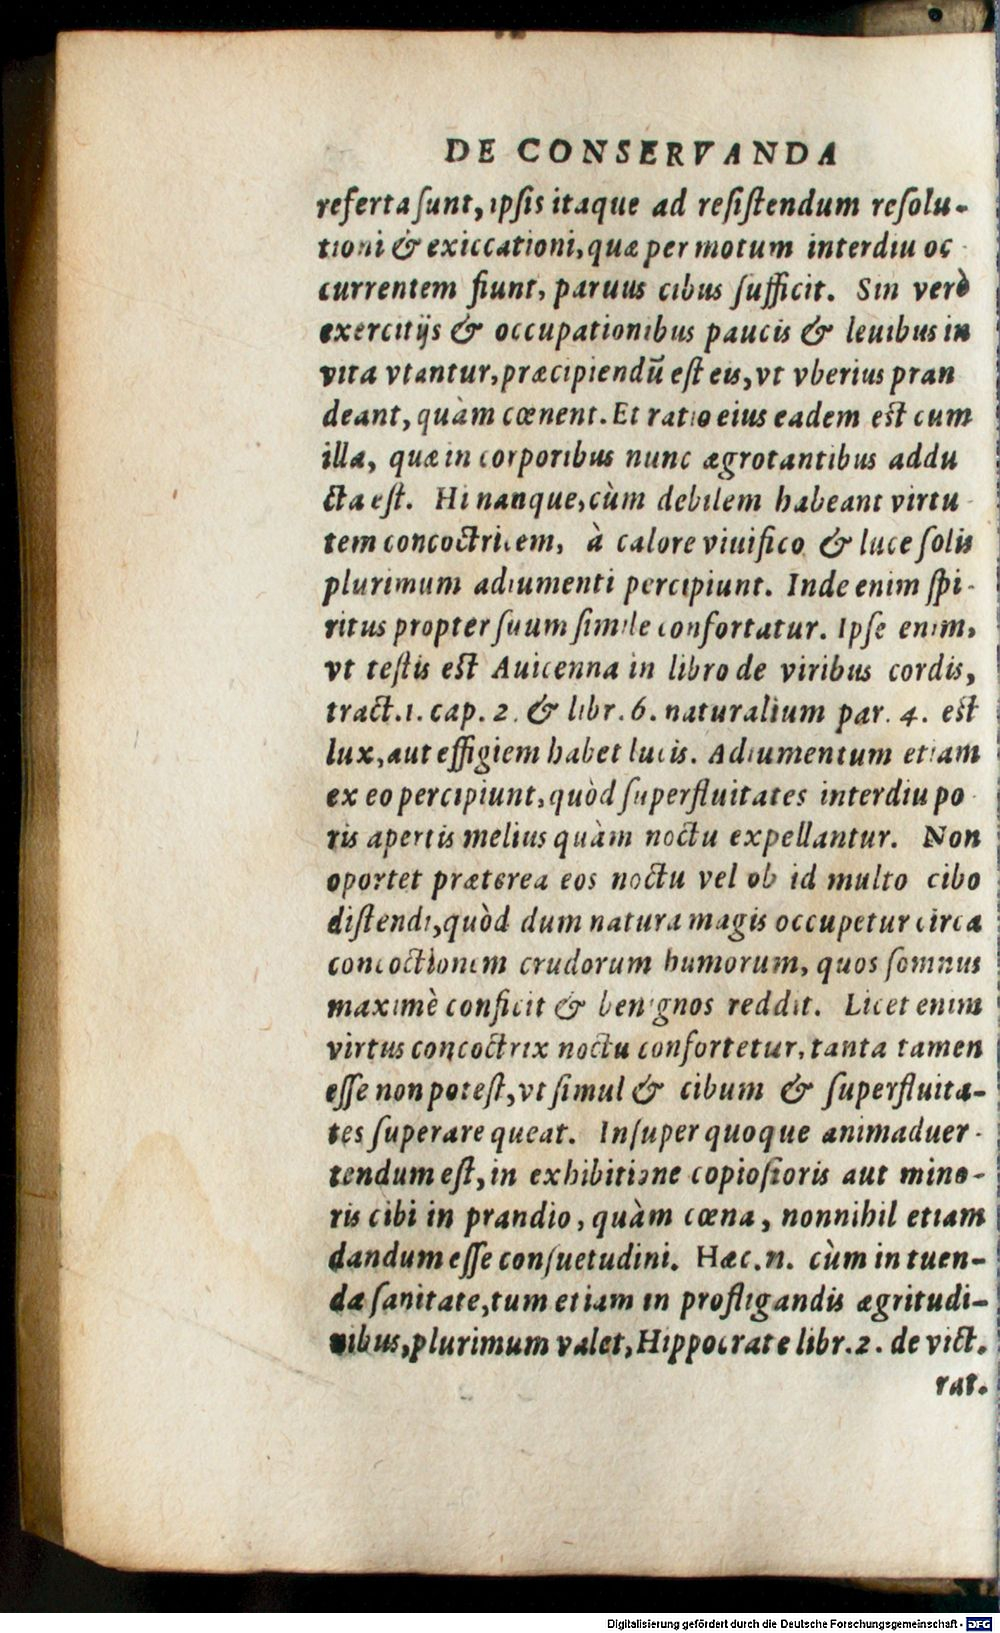 DE CONSERVANDA
referta sunt, ipsis itaque ad resistendum resolu-
tioni & exiccationi, quæ per motum interdiu oc
currentem fiunt, paruus cibus sufficit. Sin verò
exercitijs & occupationibus paucis & leuibus in
vita vtantur, præcipiendū est eis, vt vberius pran
deant, quàm cœnent. Et ratio eius eadem est cum
illa, quæ in corporibus nunc ægrotantibus addu
cta est. Hi nanque, cùm debilem habeant virtu
tem concoctricem, à calore viuifico & luce solis
plurimum adiumenti percipiunt. Inde enim spi-
ritus propter suum simile confortatur. Ipse enim,
vt testis est Auicenna in libro de viribus cordis,
tract.1. cap. 2. & libr. 6. naturalium par. 4. est
lux, aut effigiem habet lucis. Adiumentum etiam
ex eo percipiunt, quòd superfluitates interdiu po
ris apertis melius quàm noctu expellantur. Non
oportet præterea eos noctu vel ob id multo cibo
distendi, quòd dum natura magis occupetur circa
concoctionem crudorum humorum, quos somnus
maximè conficit & benignos reddit. Licet enim
virtus concoctrix noctu confortetur, tanta tamen
esse non potest, vt simul & cibum & superfluita-
tes superare queat. Insuper quoque animaduer-
tendum est, in exhibitione copiosioris aut mino-
ris cibi in prandio, quàm cœna, nonnihil etiam
dandum esse consuetudini. Hæc.n. cùm in tuen-
da sanitate, tum etiam in profligandis ægritudi-
nibus, plurimum valet, Hippocrate libr. 2. de vict.
rat.
Digitalisierung gefördert durch die Deutsche Forschungsgemeinschaft - DFG